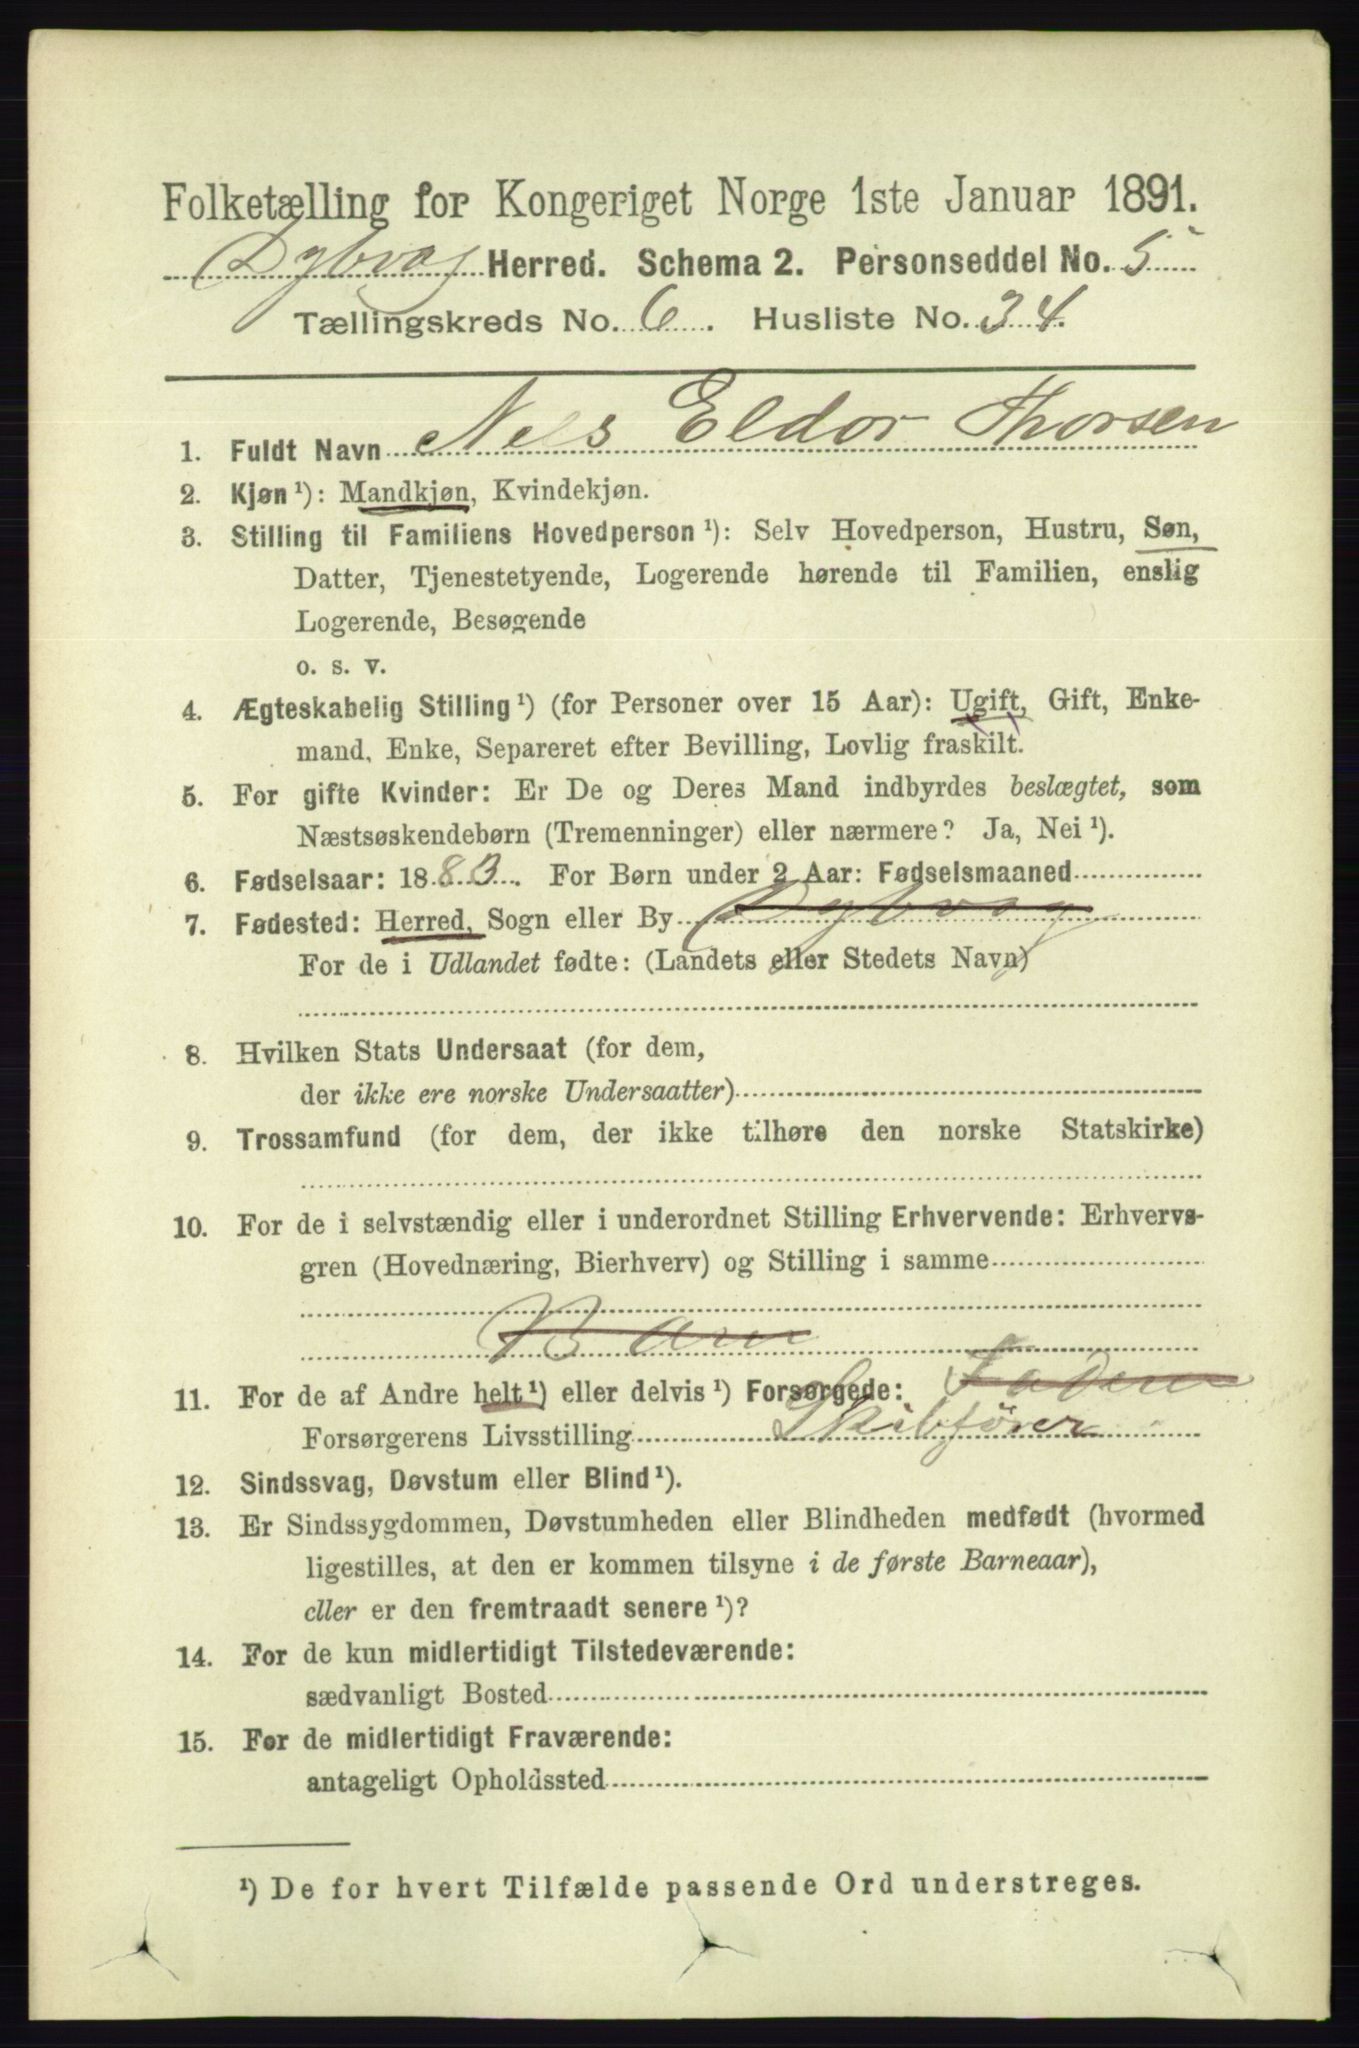 Folketælling for Kongeriget Norge 1ste Januar 1891.
Dybvag Herred. Schema 2. Personseddel No. 5
Tællingskreds No. 6. Husliste No. 34.
1. Fuldt Navn Nels Eldor Thorsen
2. Kjøn ¹): Mandkjøn, Kvindekjøn.
3. Stilling til Familiens Hovedperson ¹): Selv Hovedperson, Hustru, Søn,
Datter, Tjenestetyende, Logerende hørende til Familien, enslig
Logerende, Besøgende
o. s. v.
4. Ægteskabelig Stilling ¹) (for Personer over 15 Aar): Ugift, Gift, Enke-
mand, Enke, Separeret efter Bevilling, Lovlig fraskilt.
5. For gifte Kvinder: Er De og Deres Mand indbyrdes beslægtet, som
Næstsøskendebørn (Tremenninger) eller nærmere? Ja, Nei ¹).
6. Fødselsaar: 1883. For Børn under 2 Aar: Fødselsmaaned
7. Fødested: Herred, Sogn eller By Dybvag
For de i Udlandet fødte: (Landets eller Stedets Navn)
8. Hvilken Stats Undersaat (for dem,
der ikke ere norske Undersaatter)
9. Trossamfund (for dem, der ikke tilhøre den norske Statskirke)
10. For de i selvstændig eller i underordnet Stilling Erhvervende: Erhvervs-
gren (Hovednæring, Bierhverv) og Stilling i samme
Barn
11. For de af Andre helt ¹) eller delvis ¹) Forsørgede: Faderen
Forsørgerens Livsstilling Skibfører
12. Sindssvag, Døvstum eller Blind ¹).
13. Er Sindssygdommen, Døvstumheden eller Blindheden medfødt (hvormed
ligestilles, at den er kommen tilsyne i de første Barneaar),
eller er den fremtraadt senere ¹)?
14. For de kun midlertidigt Tilstedeværende:
sædvanligt Bosted
15. For de midlertidigt Fraværende:
antageligt Opholdssted
¹) De for hvert Tilfælde passende Ord understreges.